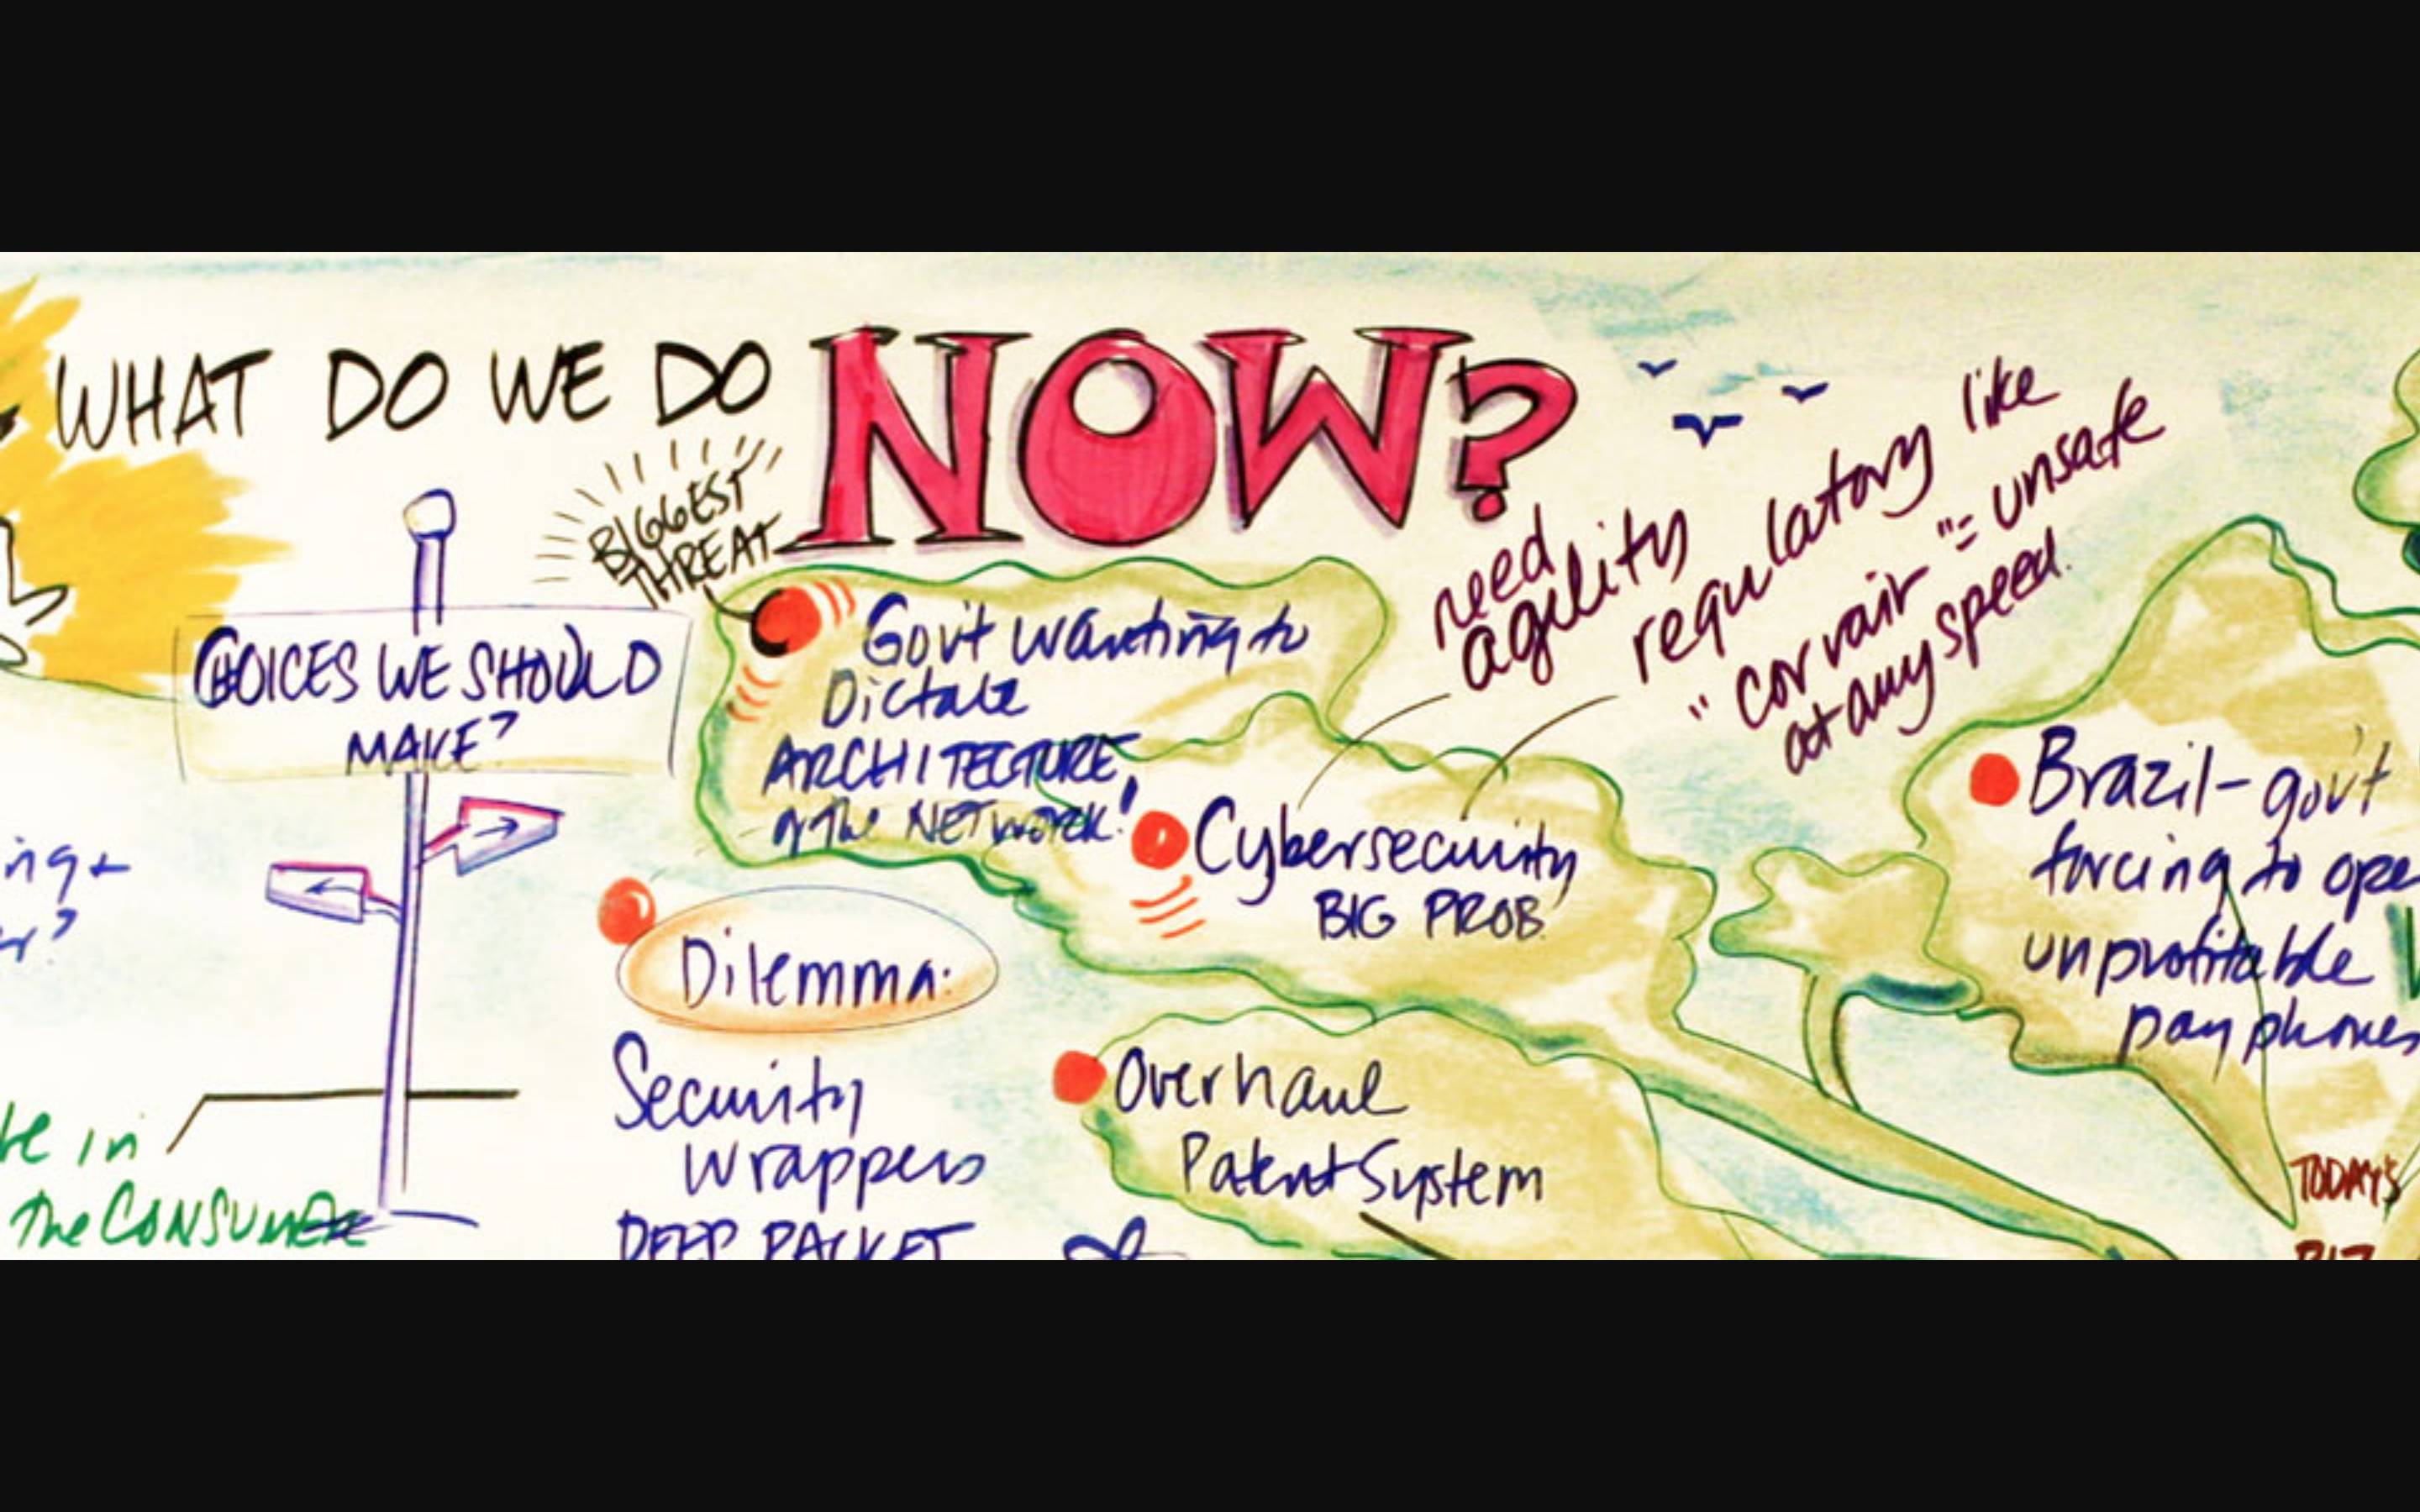 WHAT DO WE DO NOW?
BIGGEST
THREAT
CHOICES WE SHOULD
MAKE?
Gov't wanting to
Dictate
ARCHITECTURE
of The NETWORK!
need
agility
regulatory like
"Corvair" = unsafe
at any speed.
Cybersecurity
BIG PROB.
Brazil - gov't
forcing to ope
unprofitable
pay phones
Dilemma:
Security
Wrappers
DEEP PACKET
Overhaul
Patent System
ing +
r?
te in
The CONSUMER
TODAY'S
BIZ